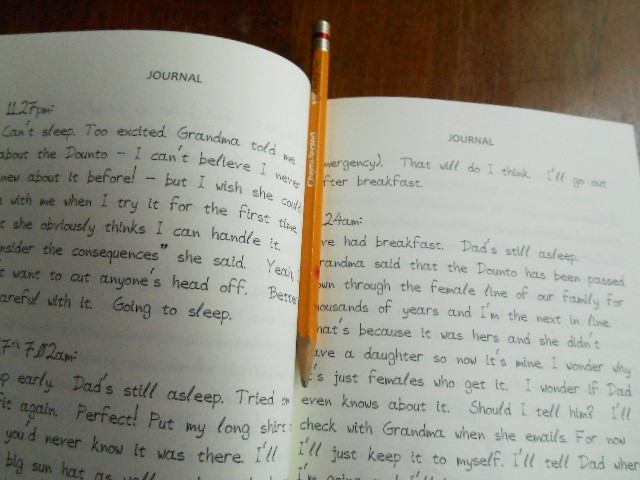 JOURNAL
11.27pm:
Can't sleep. Too excited. Grandma told me
about the Dounto - I can't believe I never
new about it before! - but I wish she could
with me when I try it for the first time
she obviously thinks I can handle it.
nsider the consequences" she said. Yeah,
want to cut anyone's head off. Better
areful with it. Going to sleep.
7th 7.02am:
p early. Dad's still asleep. Tried on
fit again. Perfect! Put my long shirt
you'd never know it was there. I'll
big sun hat as well
JOURNAL
mergency). That will do I think. I'll go out
fter breakfast.
24am:
ve had breakfast. Dad's still asleep.
randma said that the Dounto has been passed
own through the female line of our family for
housands of years and I'm the next in line.
hat's because it was hers and she didn't
ave a daughter so now it's mine. I wonder why
t's just females who get it. I wonder if Dad
even knows about it. Should I tell him? I'll
check with Grandma when she emails. For now
I'll just keep it to myself. I'll tell Dad when